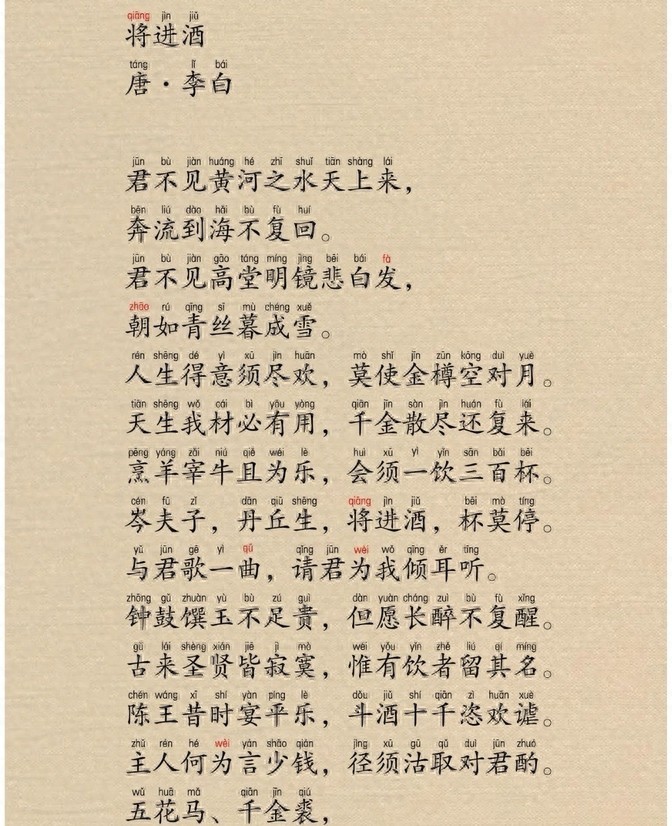 qiāng jìn jiǔ
将进酒
táng lǐ bái
唐·李白
jūn bù jiàn huáng hé zhī shuǐ tiān shàng lái
君不见黄河之水天上来，
bēn liú dào hǎi bù fù huí
奔流到海不复回。
jūn bù jiàn gāo táng míng jìng bēi bái fà
君不见高堂明镜悲白发，
zhāo rú qīng sī mù chéng xuě
朝如青丝暮成雪。
rén shēng dé yì xū jìn huān mò shǐ jīn zūn kōng duì yuè
人生得意须尽欢，莫使金樽空对月。
tiān shēng wǒ cái bì yǒu yòng qiān jīn sàn jìn huán fù lái
天生我材必有用，千金散尽还复来。
pēng yáng zǎi niú qiě wéi lè huì xū yì yǐn sān bǎi bēi
烹羊宰牛且为乐，会须一饮三百杯。
cén fū zǐ dān qiū shēng qiāng jìn jiǔ bēi mò tíng
岑夫子，丹丘生，将进酒，杯莫停。
yǔ jūn gē yì qǔ qǐng jūn wèi wǒ qīng ěr tīng
与君歌一曲，请君为我倾耳听。
zhōng gǔ zhuàn yù bù zú guì dàn yuàn cháng zuì bù fù xǐng
钟鼓馔玉不足贵，但愿长醉不复醒。
gǔ lái shèng xián jiē jì mò wéi yǒu yǐn zhě liú qí míng
古来圣贤皆寂寞，惟有饮者留其名。
chén wáng xī shí yàn píng lè dǒu jiǔ shí qiān zì huān xuè
陈王昔时宴平乐，斗酒十千恣欢谑。
zhǔ rén hé wèi yán shǎo qián jìng xū gū qǔ duì jūn zhuó
主人何为言少钱，径须沽取对君酌。
wǔ huā mǎ qiān jīn qiú
五花马、千金裘，